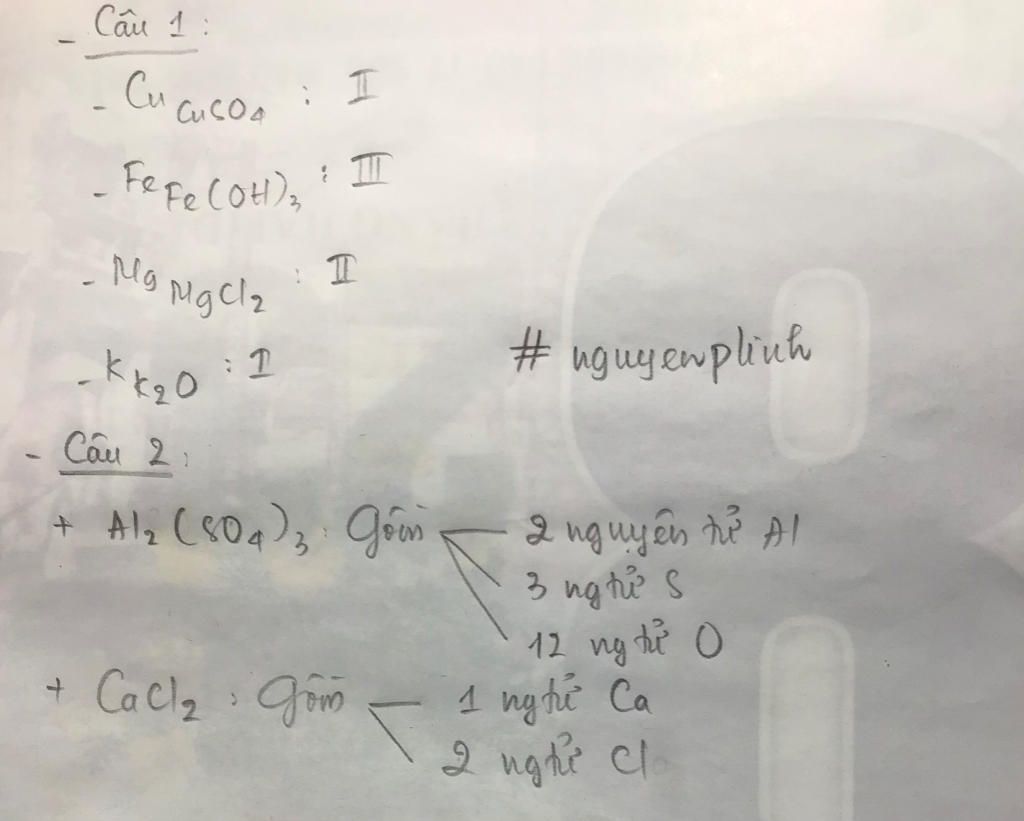 - Câu 1:
- Cu CuSO4 : II
- Fe Fe(OH)3 : III
- Mg MgCl2 : II
- K K2O : I
# nguyenplinh
- Câu 2:
+ Al2(SO4)3 : Gồm 2 nguyên tử Al
3 ng tử S
12 ng tử O
+ CaCl2 : Gồm 1 ng tử Ca
2 ng tử Cl